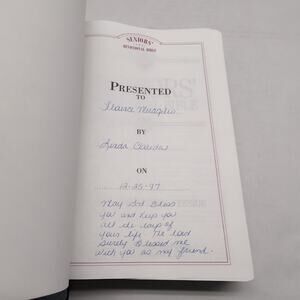 SENIORS'
DEVOTIONAL BIBLE
PRESENTED
TO
BY
Linda
ON
12-25-97
May God Bless
you and keep you
all the days of
your life. The Lord
Surely Blessed me
with you as my friend.